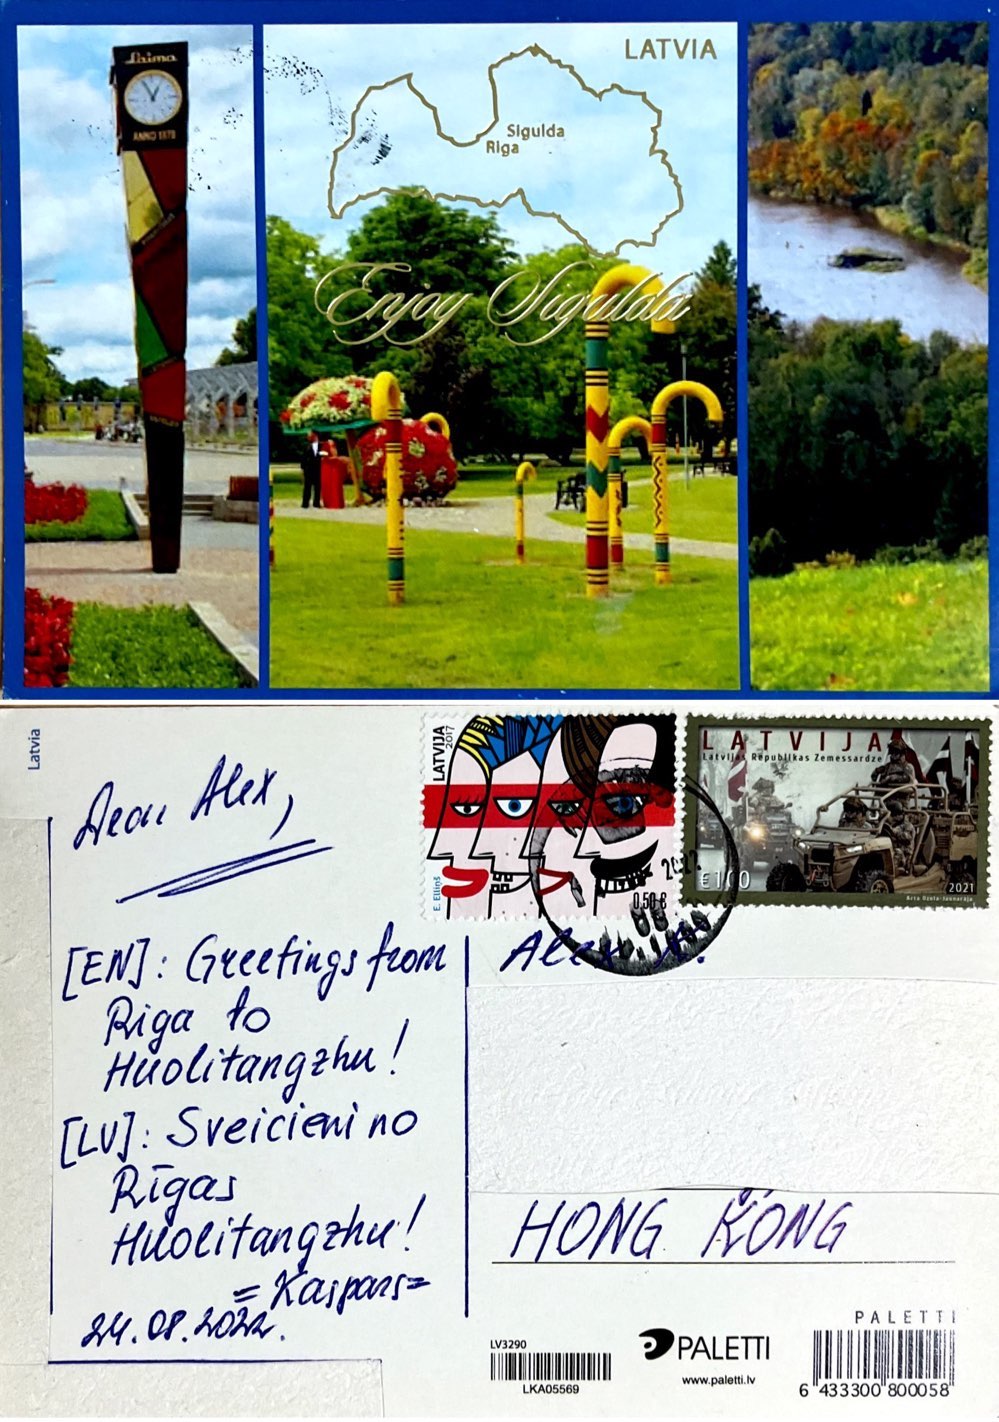 Laima
ANNO 1870
LATVIA
Sigulda
Riga
Enjoy Sigulda
Latvia
Dear Alex,
[EN]: Greetings from
Riga to
Huolitangzhu!
[LV]: Sveicieni no
Rīgas
Huolitangzhu!
=Kaspars=
24.08.2022.
LATVIJA
2017
E. Eliņš
0,50 €
LATVIJA
Latvijas Republikas Zemessardze
€1,00
2021
Arta Ozola-Jaunarāja
Alex
HONG KONG
LV3290
LKA05569
PALETTI
www.paletti.lv
PALETTI
6 433300 800058